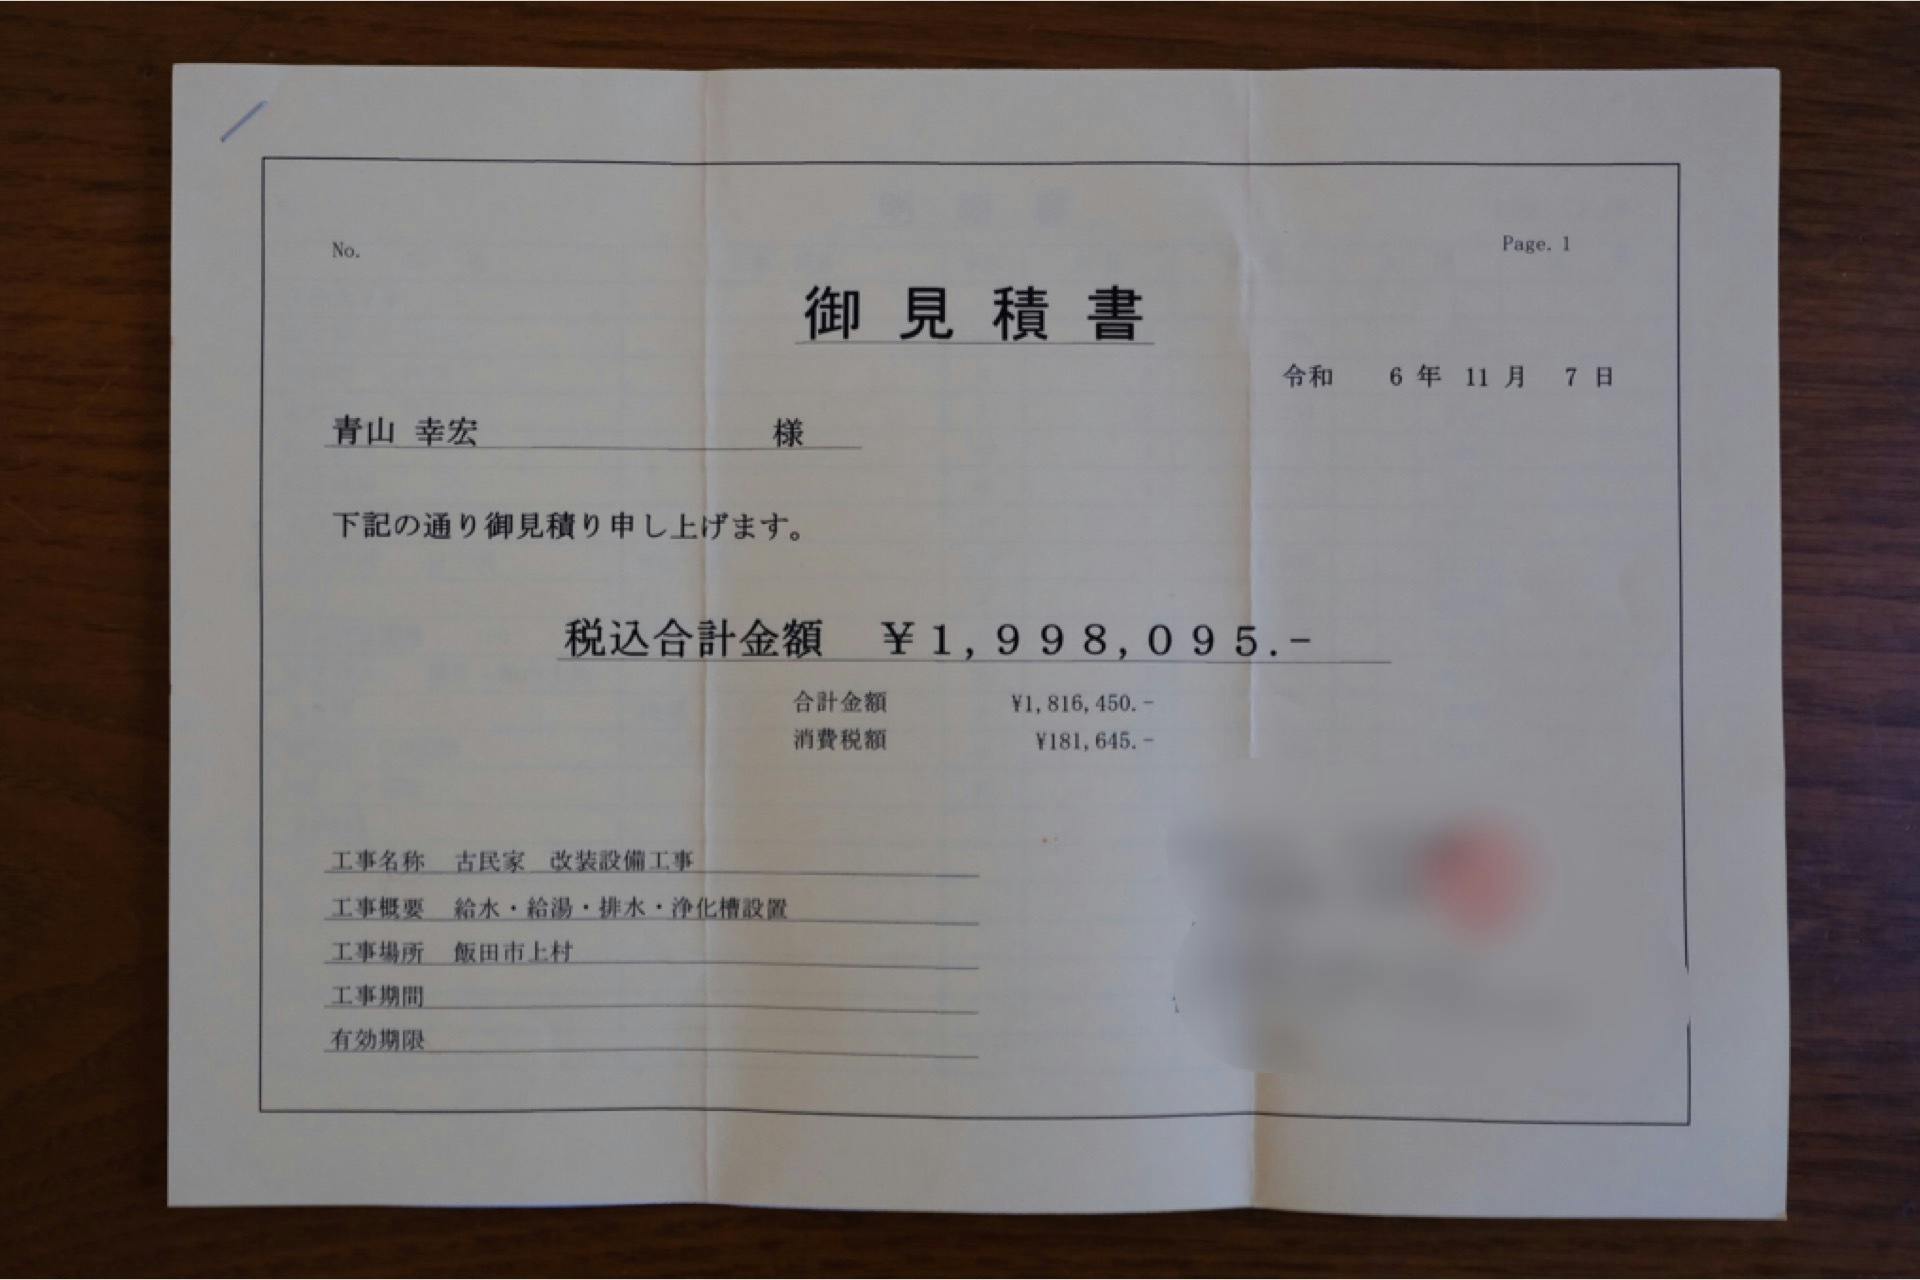 No.
Page. 1
御見積書
令和 6年 11月 7日
青山 幸宏 様
下記の通り御見積り申し上げます。
税込合計金額 ¥1,998,095.-
合計金額 ¥1,816,450.-
消費税額 ¥181,645.-
工事名称 古民家 改装設備工事
工事概要 給水・給湯・排水・浄化槽設置
工事場所 飯田市上村
工事期間
有効期限